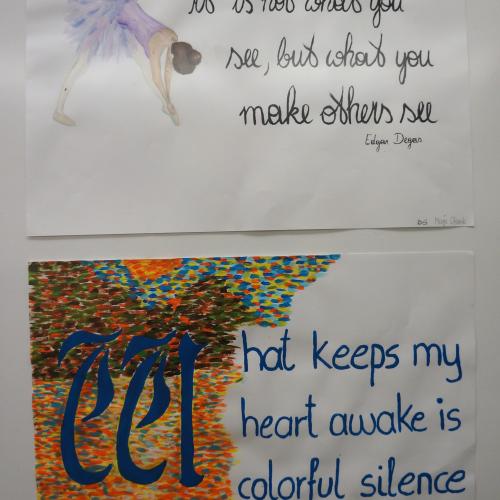 it is not what you
see, but what you
make others see
Edgar Degas
What keeps my
heart awake is
colorful silence